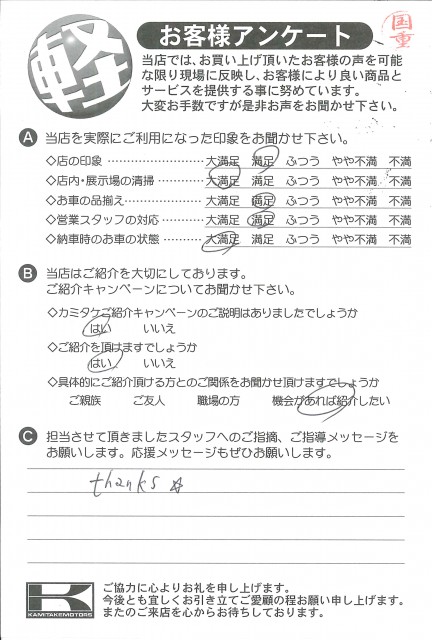 軽
お客様アンケート
国重
当店では、お買い上げ頂いたお客様の声を可能
な限り現場に反映し、お客様により良い商品と
サービスを提供する事に努めています。
大変お手数ですが是非お声をお聞かせ下さい。
A 当店を実際にご利用になった印象をお聞かせ下さい。
◇店の印象 ……………………… 大満足 満足 ふつう やや不満 不満
◇店内・展示場の清掃 ………… 大満足 満足 ふつう やや不満 不満
◇お車の品揃え………………… 大満足 満足 ふつう やや不満 不満
◇営業スタッフの対応 ………… 大満足 満足 ふつう やや不満 不満
◇納車時のお車の状態 ………… 大満足 満足 ふつう やや不満 不満
B 当店はご紹介を大切にしております。
ご紹介キャンペーンについてお聞かせ下さい。
◇カミタケご紹介キャンペーンのご説明はありましたでしょうか
はい いいえ
◇ご紹介を頂けますでしょうか
はい いいえ
◇具体的にご紹介頂ける方とのご関係をお聞かせ頂けますでしょうか
ご親族 ご友人 職場の方 機会があれば紹介したい
C 担当させて頂きましたスタッフへのご指摘、ご指導メッセージを
お願いします。応援メッセージもぜひお願いします。
thanks ☆
K
KAMITAKEMOTORS
ご協力に心よりお礼を申し上げます。
今後とも宜しくお引き立てご愛顧の程お願い申し上げます。
またのご来店を心からお待ちしております。